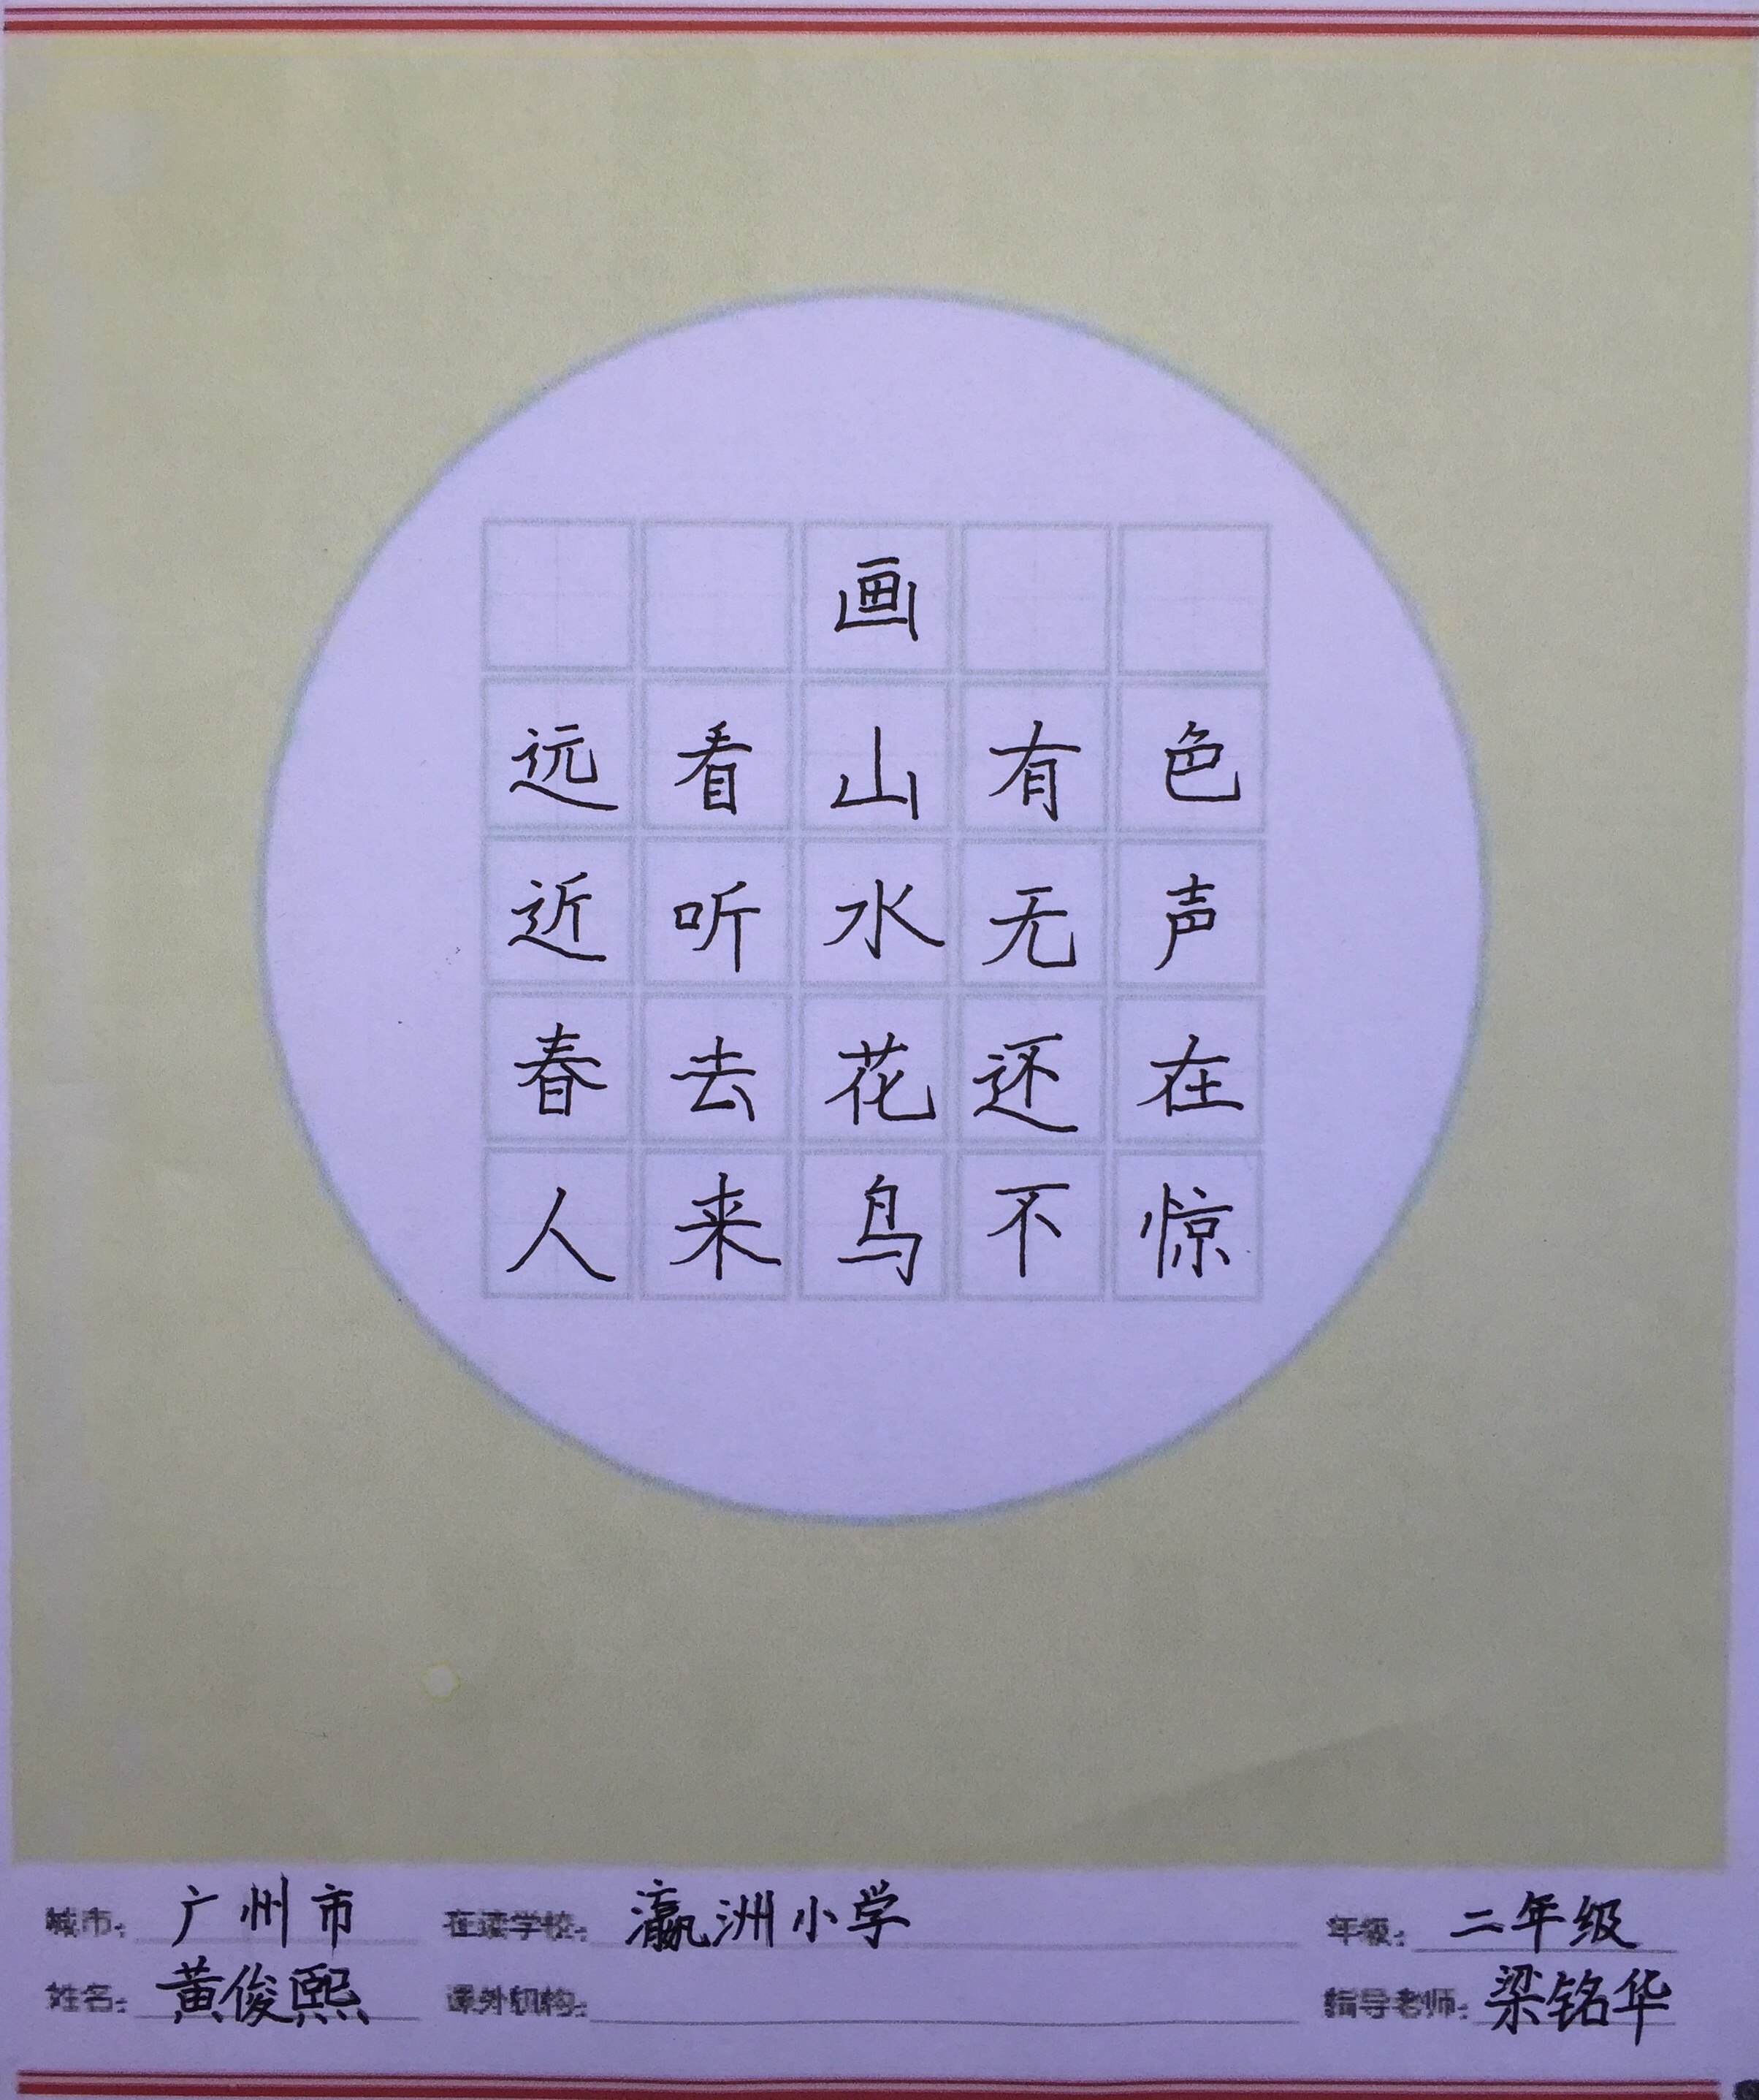 画
远看山有色
近听水无声
春去花还在
人来鸟不惊
城市: 广州市 在读学校: 瀛洲小学 年级: 二年级
姓名: 黄俊熙 课外机构: 指导老师: 梁铭华